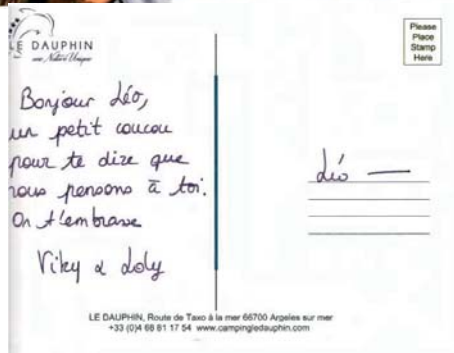 LE DAUPHIN
une Nature Unique
Please
Place
Stamp
Here
Bonjour Léo,
un petit coucou
pour te dire que
nous pensons à toi.
On t'embrasse
Viky & Loly
Léo
LE DAUPHIN, Route de Taxo à la mer 66700 Argeles sur mer
+33 (0)4 68 81 17 54 www.campingledauphin.com